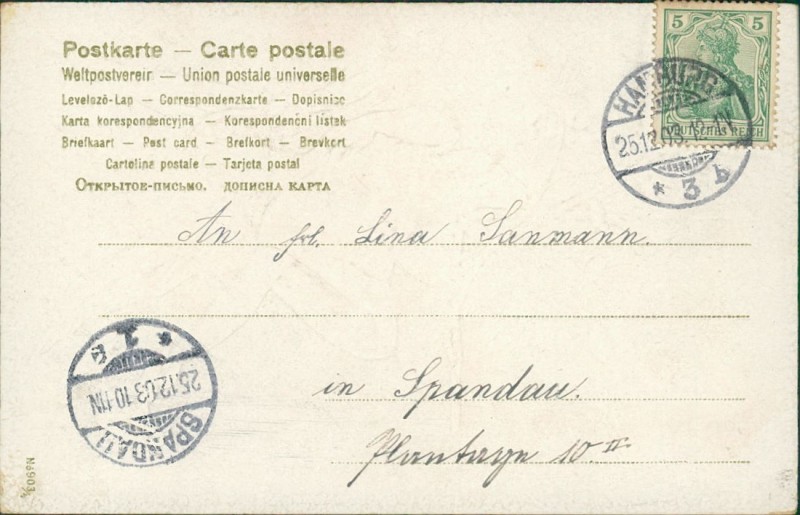 Postkarte — Carte postale
Weltpostverein — Union postale universelle
Levelező-Lap — Correspondenzkarte — Dopisnice
Karta korespondencyjna — Korespondenční lístek
Briefkaart — Post card — Brefkort — Brevkort
Cartolina postale — Tarjeta postal
Открытое-письмо. дописна карта
5 5
DEUTSCHES REICH
HAMBURG
25.12.03. 12-1V
* 3 b
An Frl. Lina Sanmann.
in Spandau.
Plantage 10 II
* 1
25.12.03 10-11N
SPANDAU